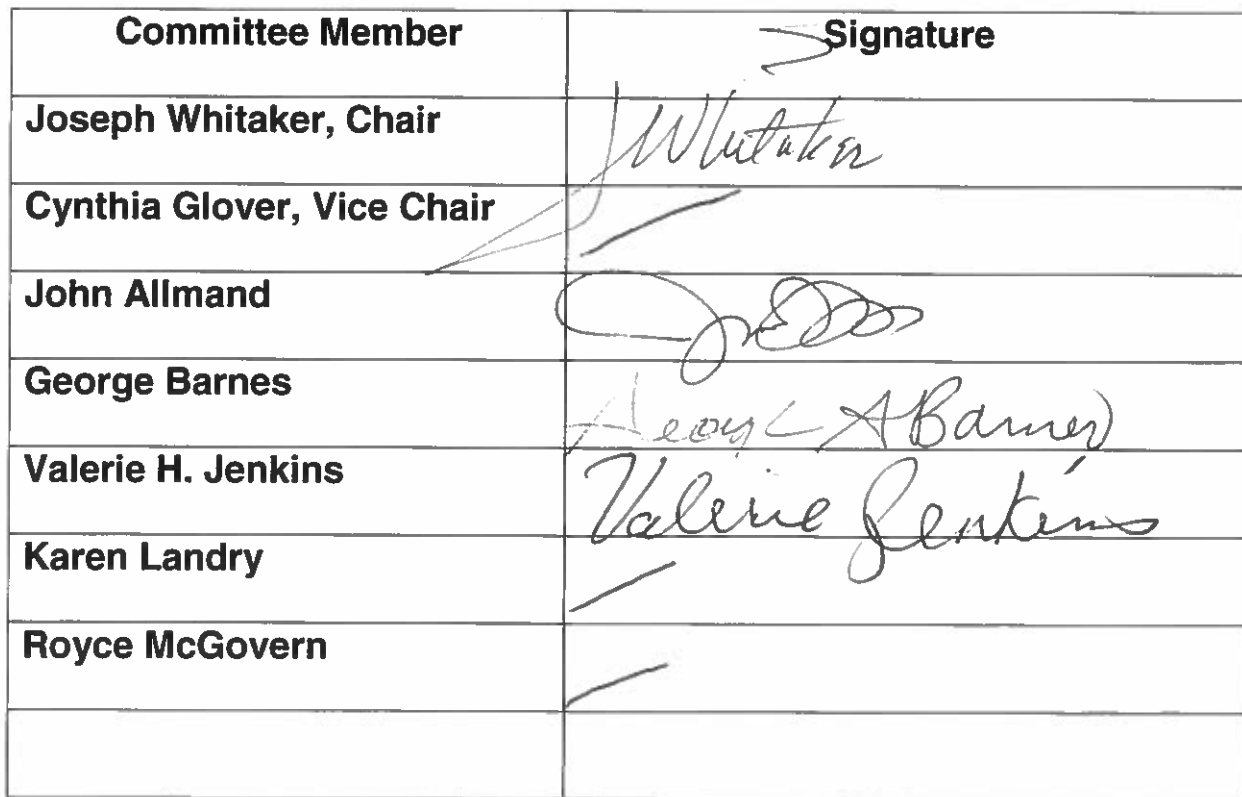 Committee Member Signature
Joseph Whitaker, Chair JWhitaker
Cynthia Glover, Vice Chair
John Allmand
George Barnes George A Barnes
Valerie H. Jenkins Valerie Jenkins
Karen Landry
Royce McGovern